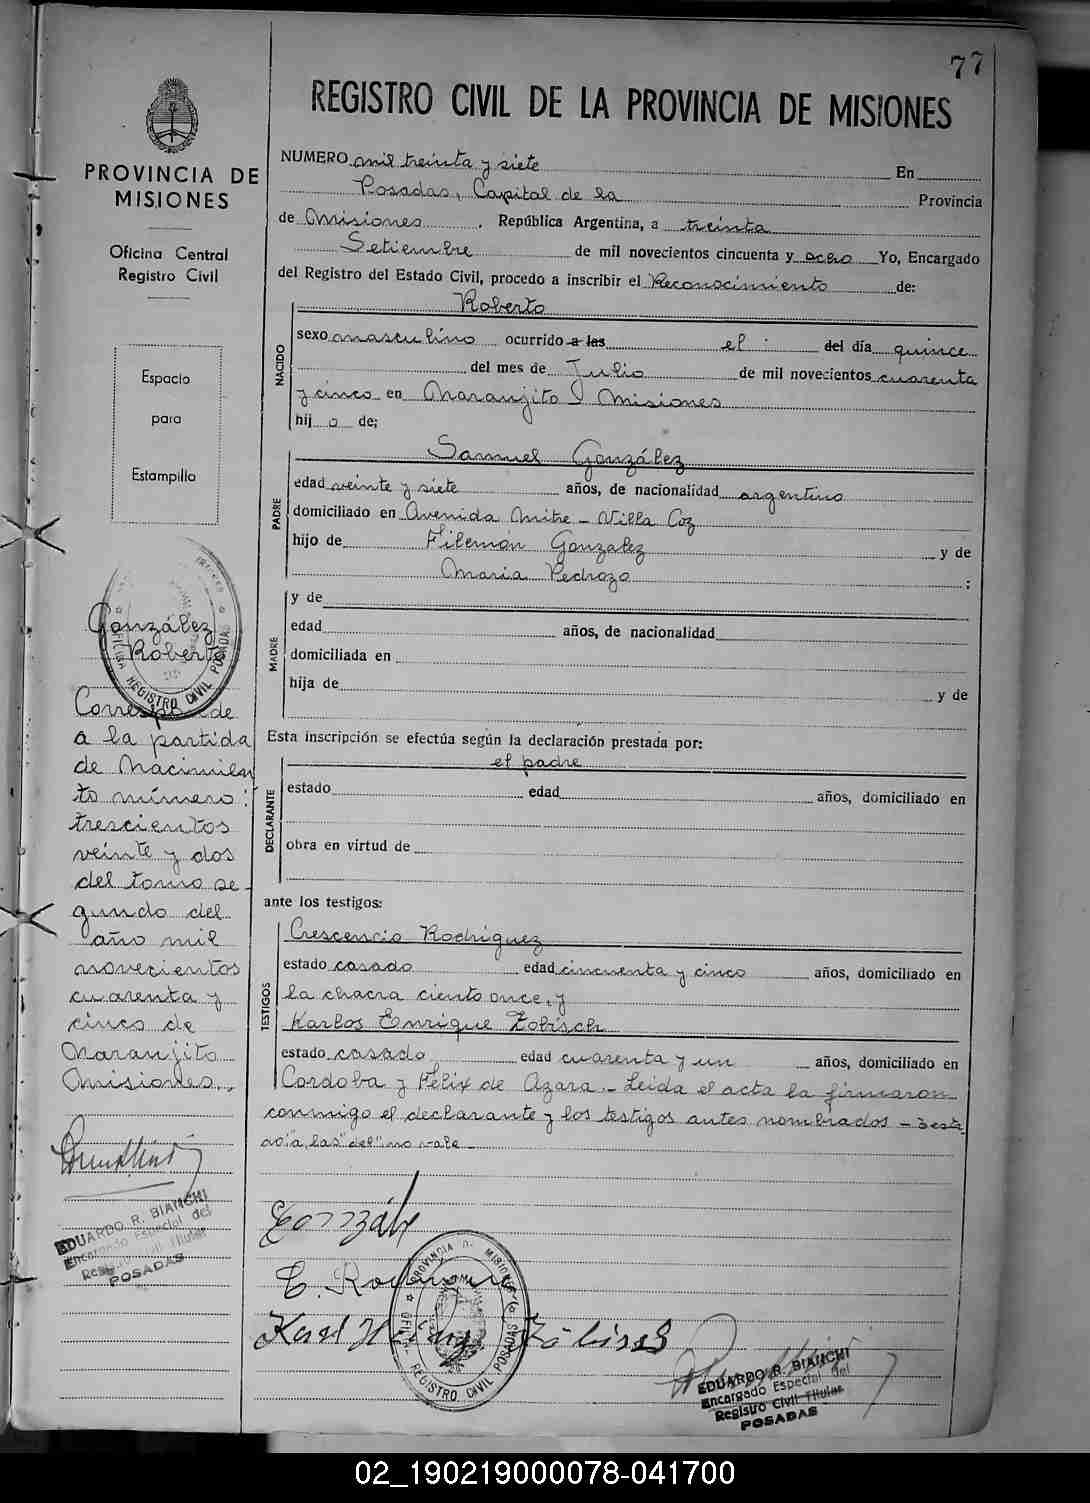 77
REGISTRO CIVIL DE LA PROVINCIA DE MISIONES
PROVINCIA DE
MISIONES
Oficina Central
Registro Civil
Espacio
para
Estampilla
González
Roberto
Corresponde
a la partida
de Nacimien
to número:
trescientos
veinte y dos
del tomo se-
gundo del
año mil
novecientos
cuarenta y
cinco de
Naranjito
Misiones.
EDUARDO R. BIANCHI
Encargado Especial del
Registro Civil Titular
POSADAS
NUMERO mil treinta y siete En
Posadas, Capital de la Provincia
de Misiones, República Argentina, a treinta
Setiembre de mil novecientos cincuenta y ocho Yo, Encargado
del Registro del Estado Civil, procedo a inscribir el Reconocimiento de:
NACIDO
Roberto
sexo masculino ocurrido a las el del día quince
del mes de Julio de mil novecientos cuarenta
y cinco en Naranjito Misiones
hij o de;
PADRE
Samuel González
edad veinte y siete años, de nacionalidad argentino
domiciliado en Avenida Mitre - Villa Coz
hijo de Filemón Gonzalez y de
Maria Pedrozo ;
MADRE
y de
edad años, de nacionalidad
domiciliada en
hija de y de
Esta inscripción se efectúa según la declaración prestada por:
DECLARANTE
el padre
estado edad años, domiciliado en
obra en virtud de
ante los testigos:
TESTIGOS
Crescencio Rodriguez
estado casado edad cincuenta y cinco años, domiciliado en
la chacra ciento once, y
Karlos Enrique Zobisch
estado casado edad cuarenta y un años, domiciliado en
Cordoba y Félix de Azara - Leida el acta la firmaron
conmigo el declarante y los testigos antes nombrados -
"a las" "del" no vale -
González
C. Rodriguez
Karl
PROVINCIA DE MISIONES
OFICINA REGISTRO CIVIL POSADAS
EDUARDO R. BIANCHI
Encargado Especial del
Registro Civil Titular
POSADAS
02_190219000078-041700